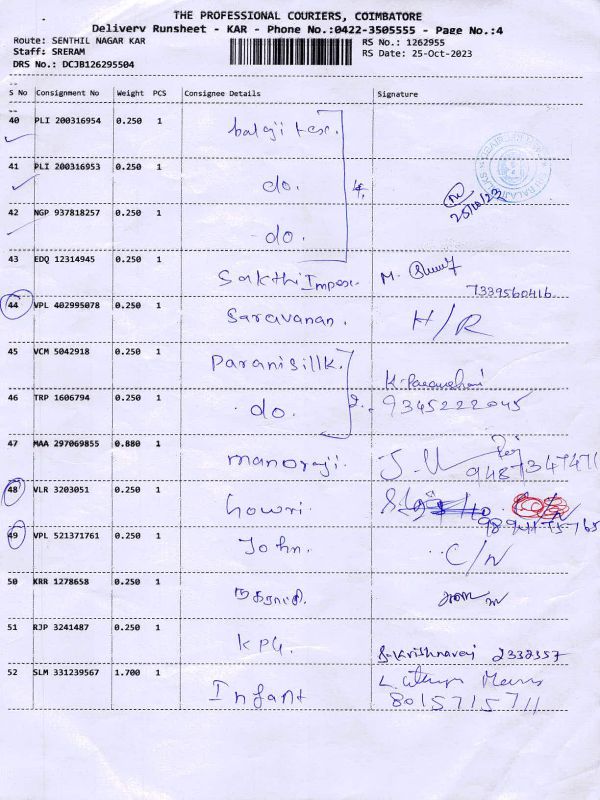 THE PROFESSIONAL COURIERS, COIMBATORE
Delivery Runsheet - KAR - Phone No.:0422-3505555 - Page No.:4
Route: SENTHIL NAGAR KAR
RS No.: 1262955
Staff: SRERAM
RS Date: 25-Oct-2023
DRS No.: DCJB126295504
S No Consignment No Weight PCS Consignee Details Signature
40 PLI 200316954 0.250 1 balaji tex.
41 PLI 200316953 0.250 1 do. 4.
42 NGP 937818257 0.250 1 do.
43 EDQ 12314945 0.250 1 Sakthi Impex. M.
7339560416
44 VPL 402995078 0.250 1 Saravanan. H/R
45 VCM 5042918 0.250 1 Paranisillk.
46 TRP 1606794 0.250 1 do. 2. 9345222045
47 MAA 297069855 0.880 1 manoraji. 9487347471
48 VLR 3203051 0.250 1 howri.
49 VPL 521371761 0.250 1 John. C/N
50 KRR 1278658 0.250 1
51 RJP 3241487 0.250 1 KPG. S-Krishnaraj 2332357
52 SLM 331239567 1.700 1 Infant 8015715711